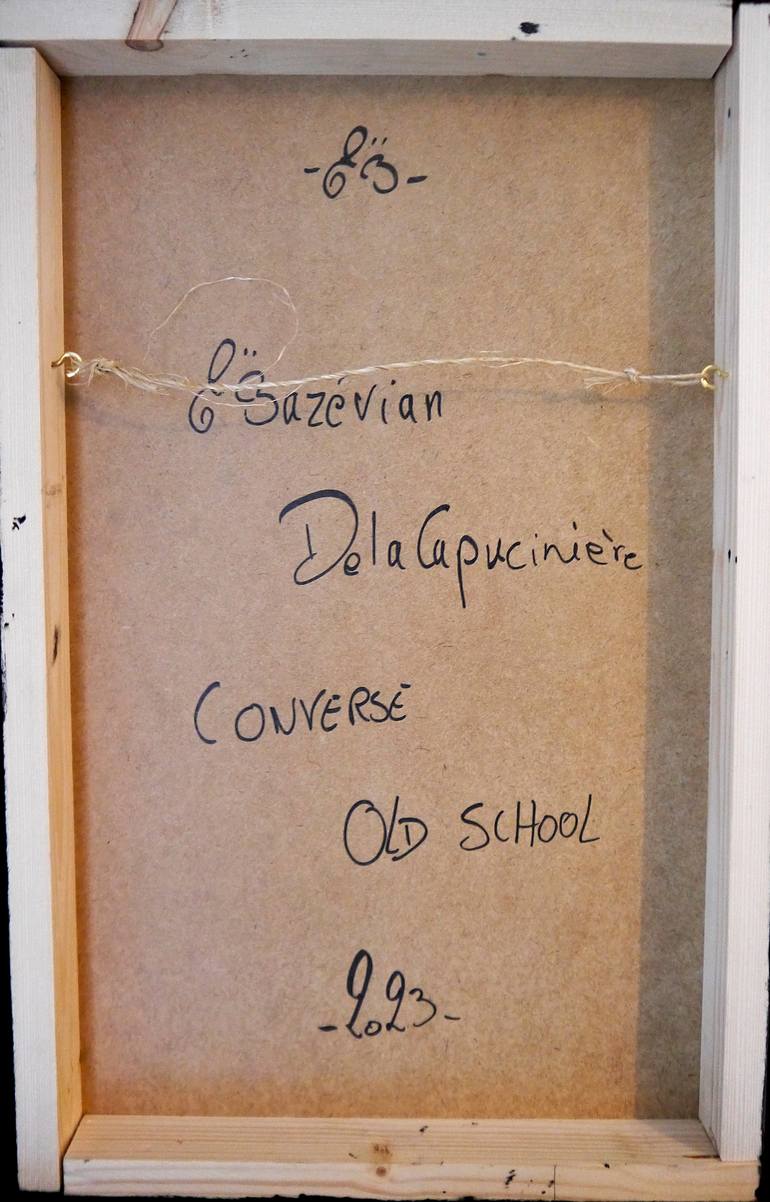 Bazévian
De la Capucinière
CONVERSE
OLD SCHOOL
-2023-